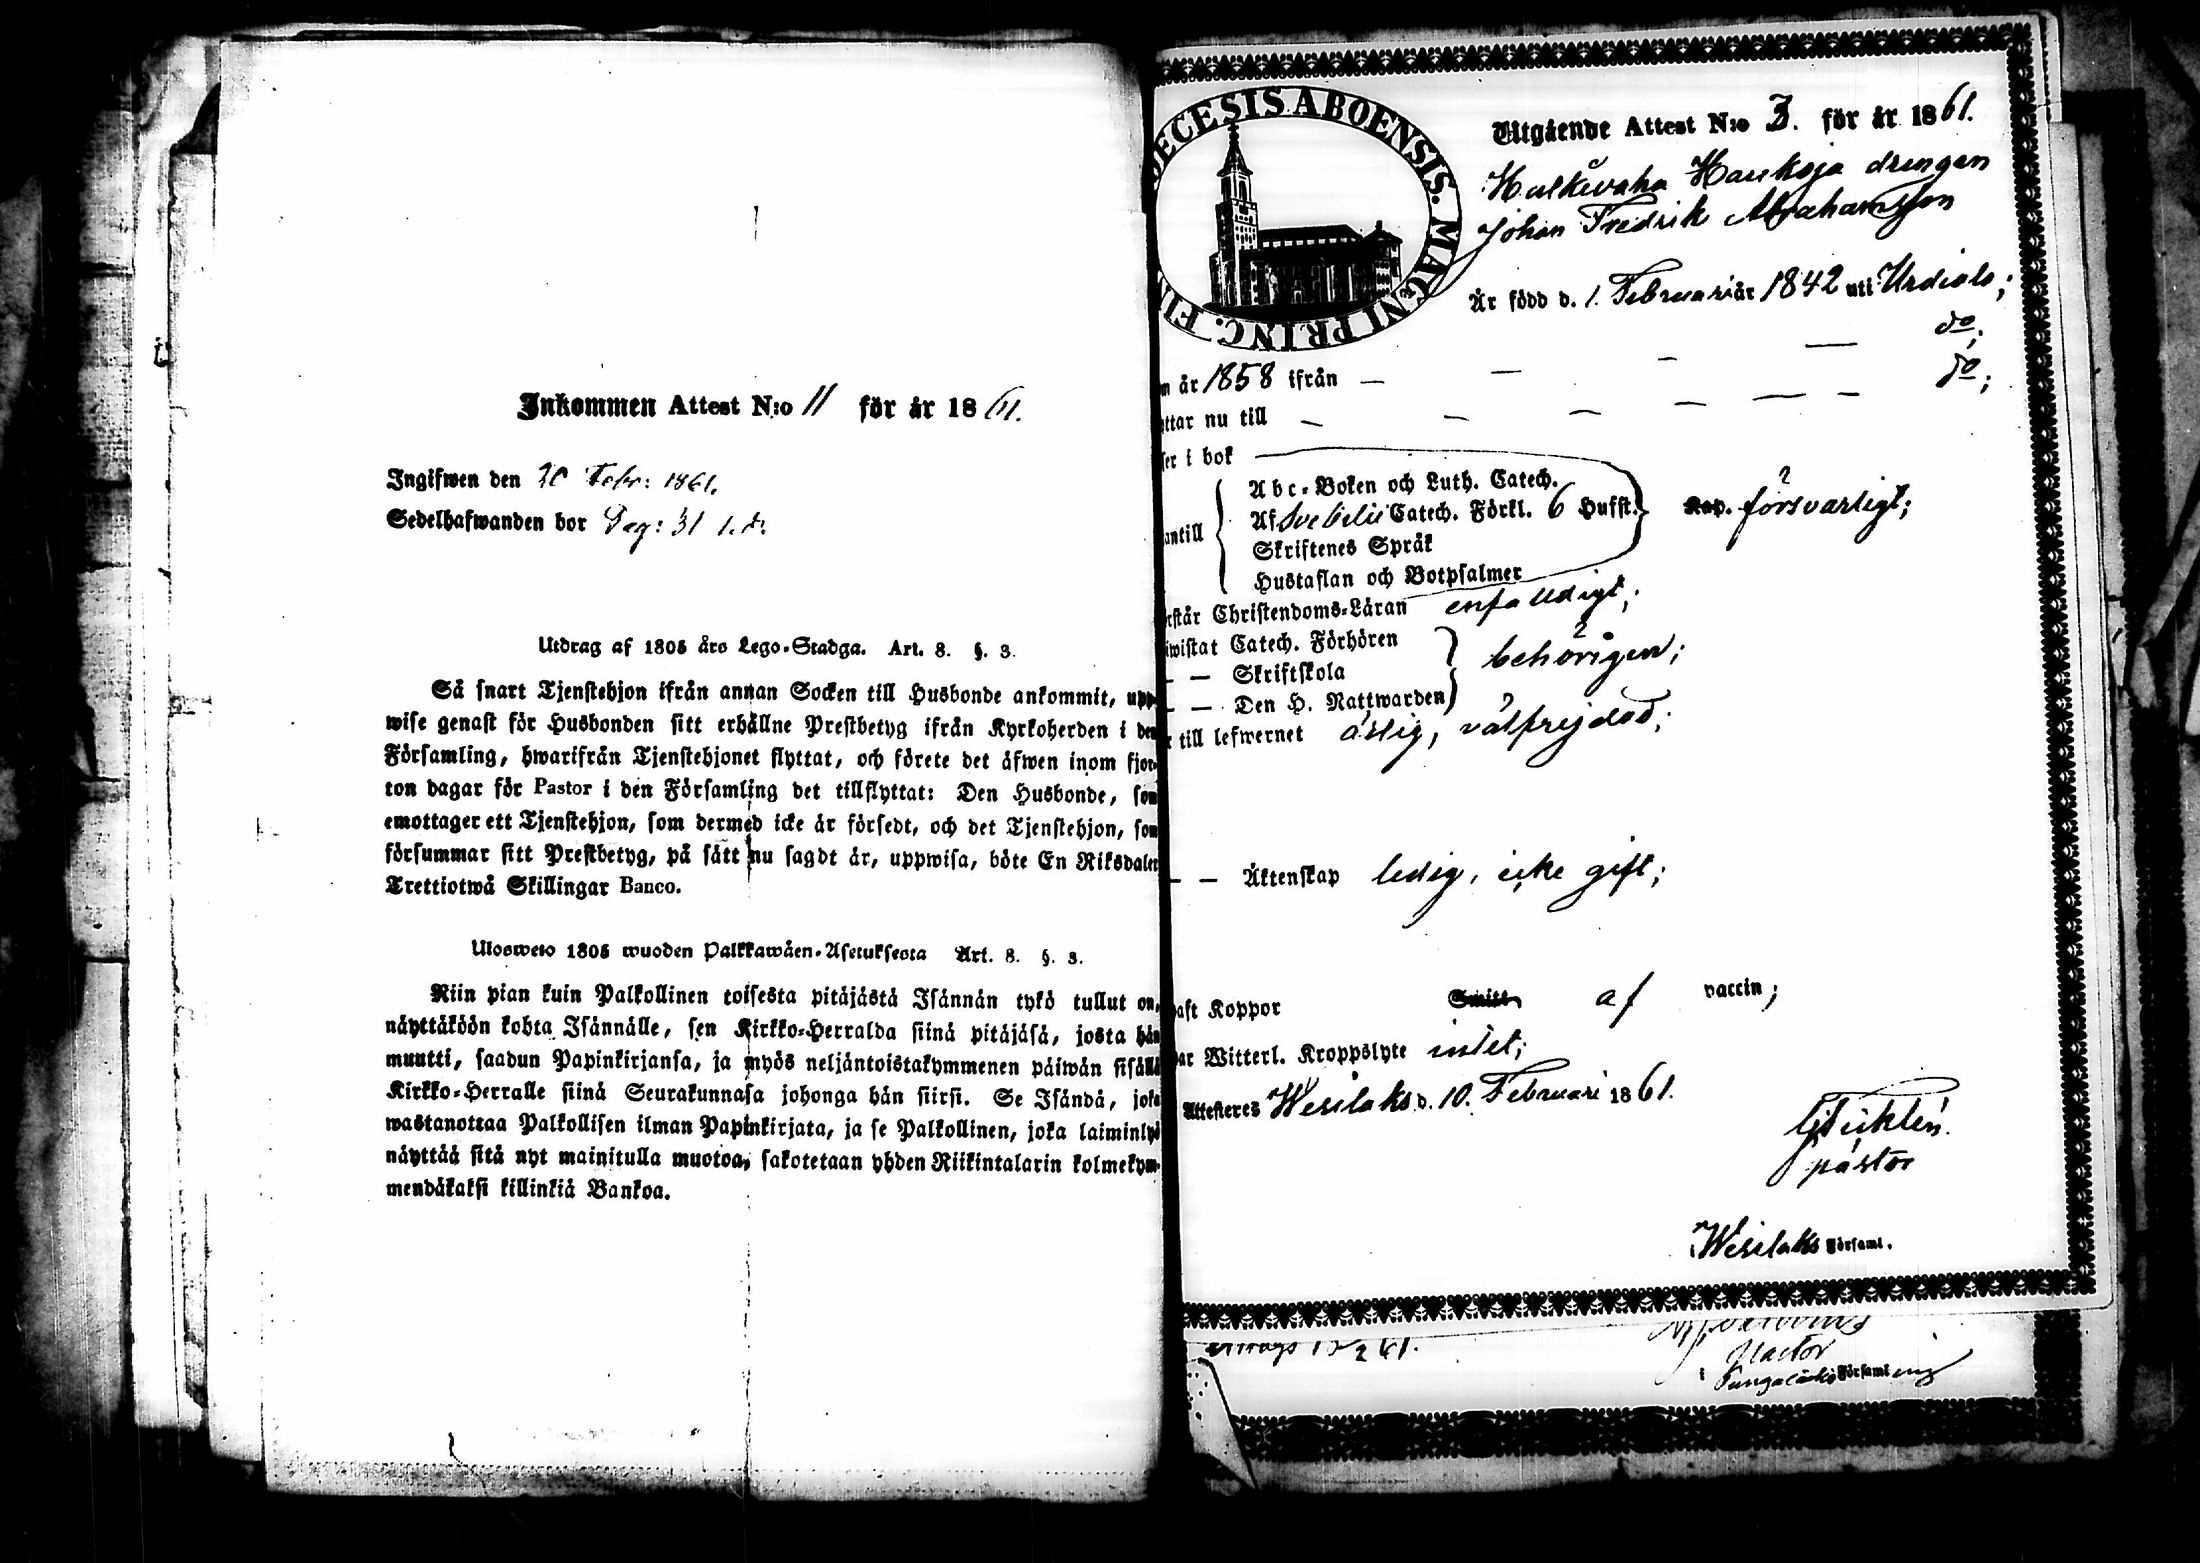 Inkommen Attest N:o 11 för år 1861.
Ingifwen den 20 Febr: 1861.
Sedelhafwanden bor Pag: 31
Utdrag af 1805 års Lego-Stadga. Art. 8. §. 3.
Så snart Tjenstehjon ifrån annan Socken till Husbonde ankommit, upp-
wise genast för Husbonden sitt erhållne Prestbetyg ifrån Kyrkoherden i den
Församling, hwarifrån Tjenstehjonet flyttat, och förete det äfwen inom fjor-
ton dagar för Pastor i den Församling det tillflyttat: Den Husbonde, som
emottager ett Tjenstehjon, som dermed icke är försedt, och det Tjenstehjon, som
försummar sitt Prestbetyg, på sätt nu sagdt är, uppwisa, böte En Riksdaler
Trettiotwå Skillingar Banco.
Ulosweto 1805 wuoden Palkkawäen-Asetuksesta Art. 8. §. 3.
Niin pian kuin Palkollinen toisesta pitäjästä Isännän tykö tullut on,
näyttäköön kohta Isännälle, sen Kirkko-Herralda siinä pitäjäsä, josta hän
muutti, saadun Papinkirjansa, ja myös neljäntoistakymmenen päiwän sisällä
Kirkko-Herralle siinä Seurakunnasa johonga hän siirsi. Se Isändä, joka
wastanottaa Palkollisen ilman Papinkirjata, ja se Palkollinen, joka laiminlyö
näyttää sitä nyt mainitulla muotoa, sakotetaan yhden Riikintalarin kolmekym-
mendäkaksi killinkiä Bankoa.
DECESIS ABOENSIS. MAGNI PRINC. FI
Utgående Attest N:o 3. för år 1861.
Hulkuvaha Hauksja drengen
Johan Fredrik Abrahamsson
Är född d. 1. Februari år 1842 uti Urdiala;
do;
n år 1858 ifrån — — — — do;
ttar nu till — — — — — —
ser i bok
Abc-Boken och Luth. Catech.
antill Af Svebelii Catech. Förkl. 6 Hufst. Kap. försvarligt;
Skriftenes Språk
Hustaflan och Botpsalmer
rstår Christendoms-Läran enfaldigt;
iwistat Catech. Förhören
— — Skriftskola behörigen;
— — Den H. Nattwarden
r till lefwernet ärlig, välfrejdad;
— — Äktenskap ledig, icke gift;
haft Koppor Smitt af vaccin;
har Witterl. Kroppslyte intet;
Attesteres Wesilaks d. 10. Februari 1861.
pastor
i Wesilaks Församl.
61.
Pastor
i Församling